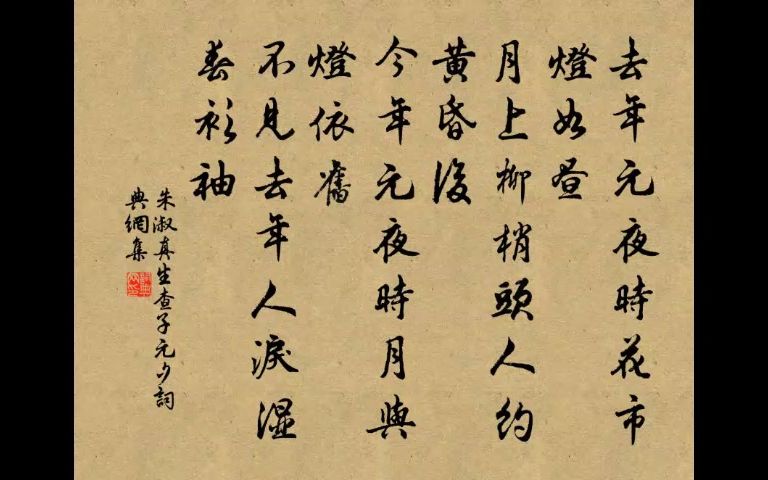 去年元夜時花市
燈如晝
月上柳梢頭人約
黃昏後
今年元夜時月與
燈依舊
不見去年人淚湿
春衫袖
朱淑真生查子元夕詞
典網集